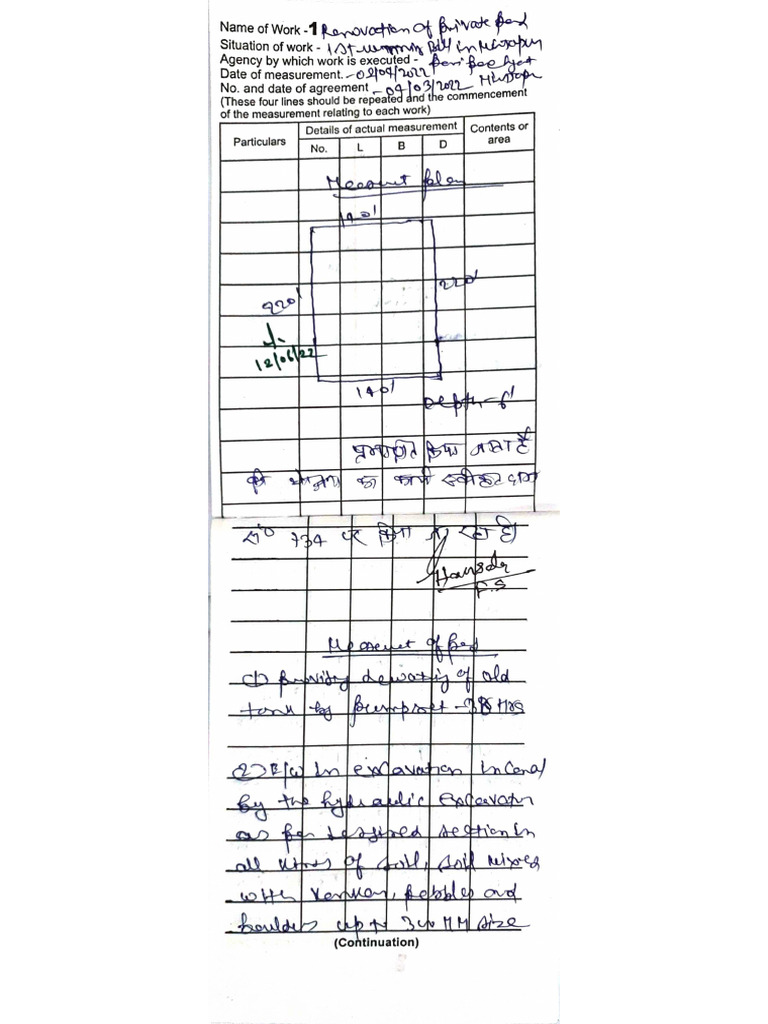 Name of Work -1 Renovation of private pond
Situation of work - 1st running Bill in Mirzapur
Agency by which work is executed -
Date of measurement. - 08/04/2022
No. and date of agreement - 04/03/2022 Mirzapur
(These four lines should be repeated and the commencement
of the measurement relating to each work)
Particulars
Details of actual measurement
Contents or area
No. L B D
plan
140'
220'
220'
12/06/22
140'
Depth-6'
प्रमाणित किया जाता है
की योजना का कार्य स्वीकृत दाग
सं० 734 पर किया गया है।
Hansda
P.S
of
(1) Providing dewatering of old
tank by pumpset - 38 Hrs
(2) E/W in excavation in canal
by the hydraulic Excavator
as per designed section in
all kinds of soil, soil mixed
with kankar, pebbles and
boulders up to 300 MM size
(Continuation)